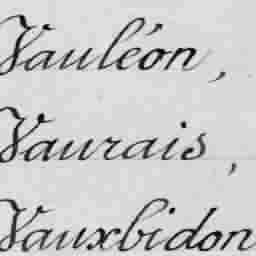 Vauléon,
Vaurais,
Vauxbidon